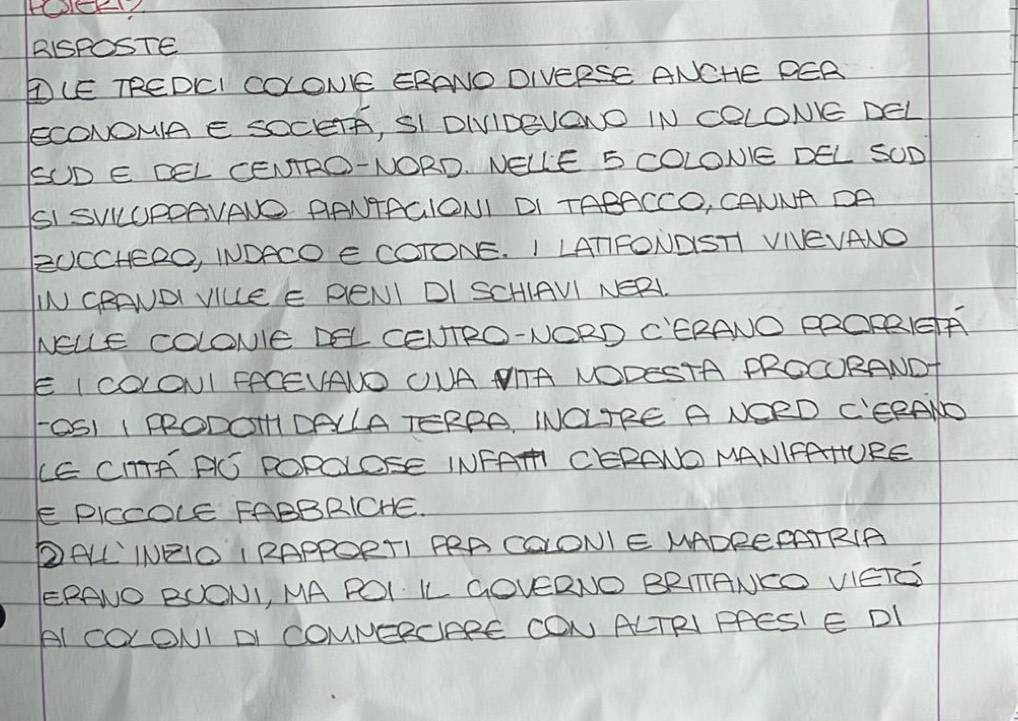 POTERI?
RISPOSTE
① LE TREDICI COLONIE ERANO DIVERSE ANCHE PER
ECONOMIA E SOCIETÁ, SI DIVIDEVONO IN COLONIE DEL
SUD E DEL CENTRO-NORD. NELLE 5 COLONIE DEL SUD
SI SVILUPPAVANO PIANTAGIONI DI TABACCO, CANNA DA
ZUCCHERO, INDACO E COTONE. I LATIFONDISTI VIVEVANO
IN GRANDI VILLE E PIENI DI SCHIAVI NERI.
NELLE COLONIE DEL CENTRO-NORD C'ERANO PROPRIETÁ
E I COLONI FACEVANO UNA VITA MODESTA PROCURAND-
-OSI I PRODOTTI DALLA TERRA. INOLTRE A NORD C'ERANO
LE CITTÁ PIÚ POPOLOSE INFATTI C'ERANO MANIFATTURE
E PICCOLE FABBRICHE.
② ALL'INIZIO I RAPPORTI FRA COLONI E MADREPATRIA
ERANO BUONI, MA POI IL GOVERNO BRITTANICO VIETÓ
AI COLONI DI COMMERCIARE CON ALTRI PAESI E DI